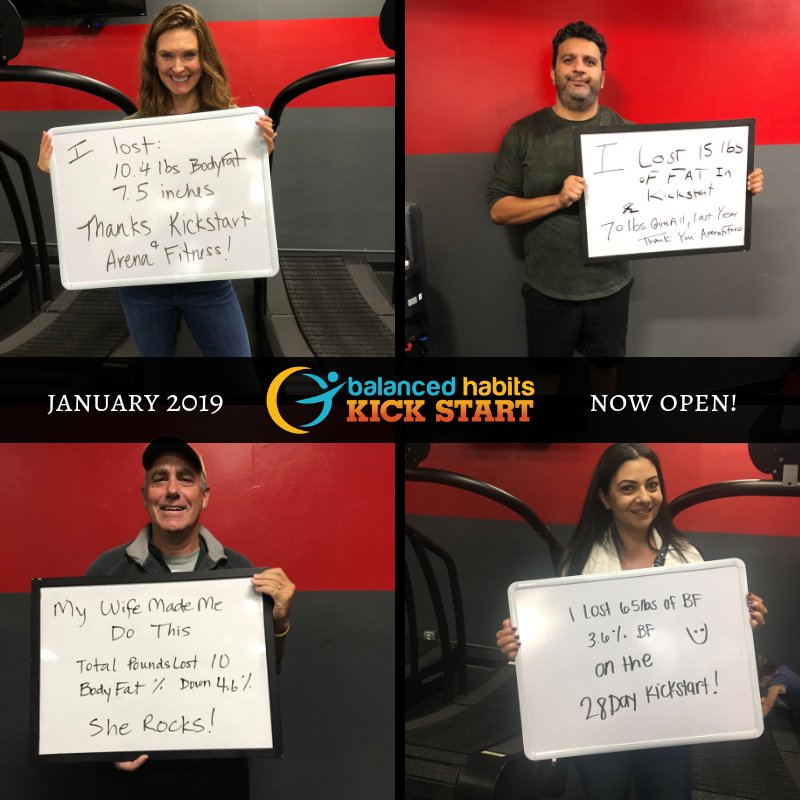 I lost:
10.4 lbs Bodyfat
7.5 inches
Thanks Kickstart
&
Arena Fitness!
I Lost 15 lbs
of FAT In
Kickstart
&
70 lbs OverAll, last Year
Thank You Arenafitness
JANUARY 2019
balanced habits
KICK START
NOW OPEN!
My Wife Made Me
Do This
Total Pounds Lost 10
Body Fat % Down 4.6%
She Rocks!
I Lost 6.5lbs of BF
3.6% BF
on the
28 Day Kickstart!
WOODWAY